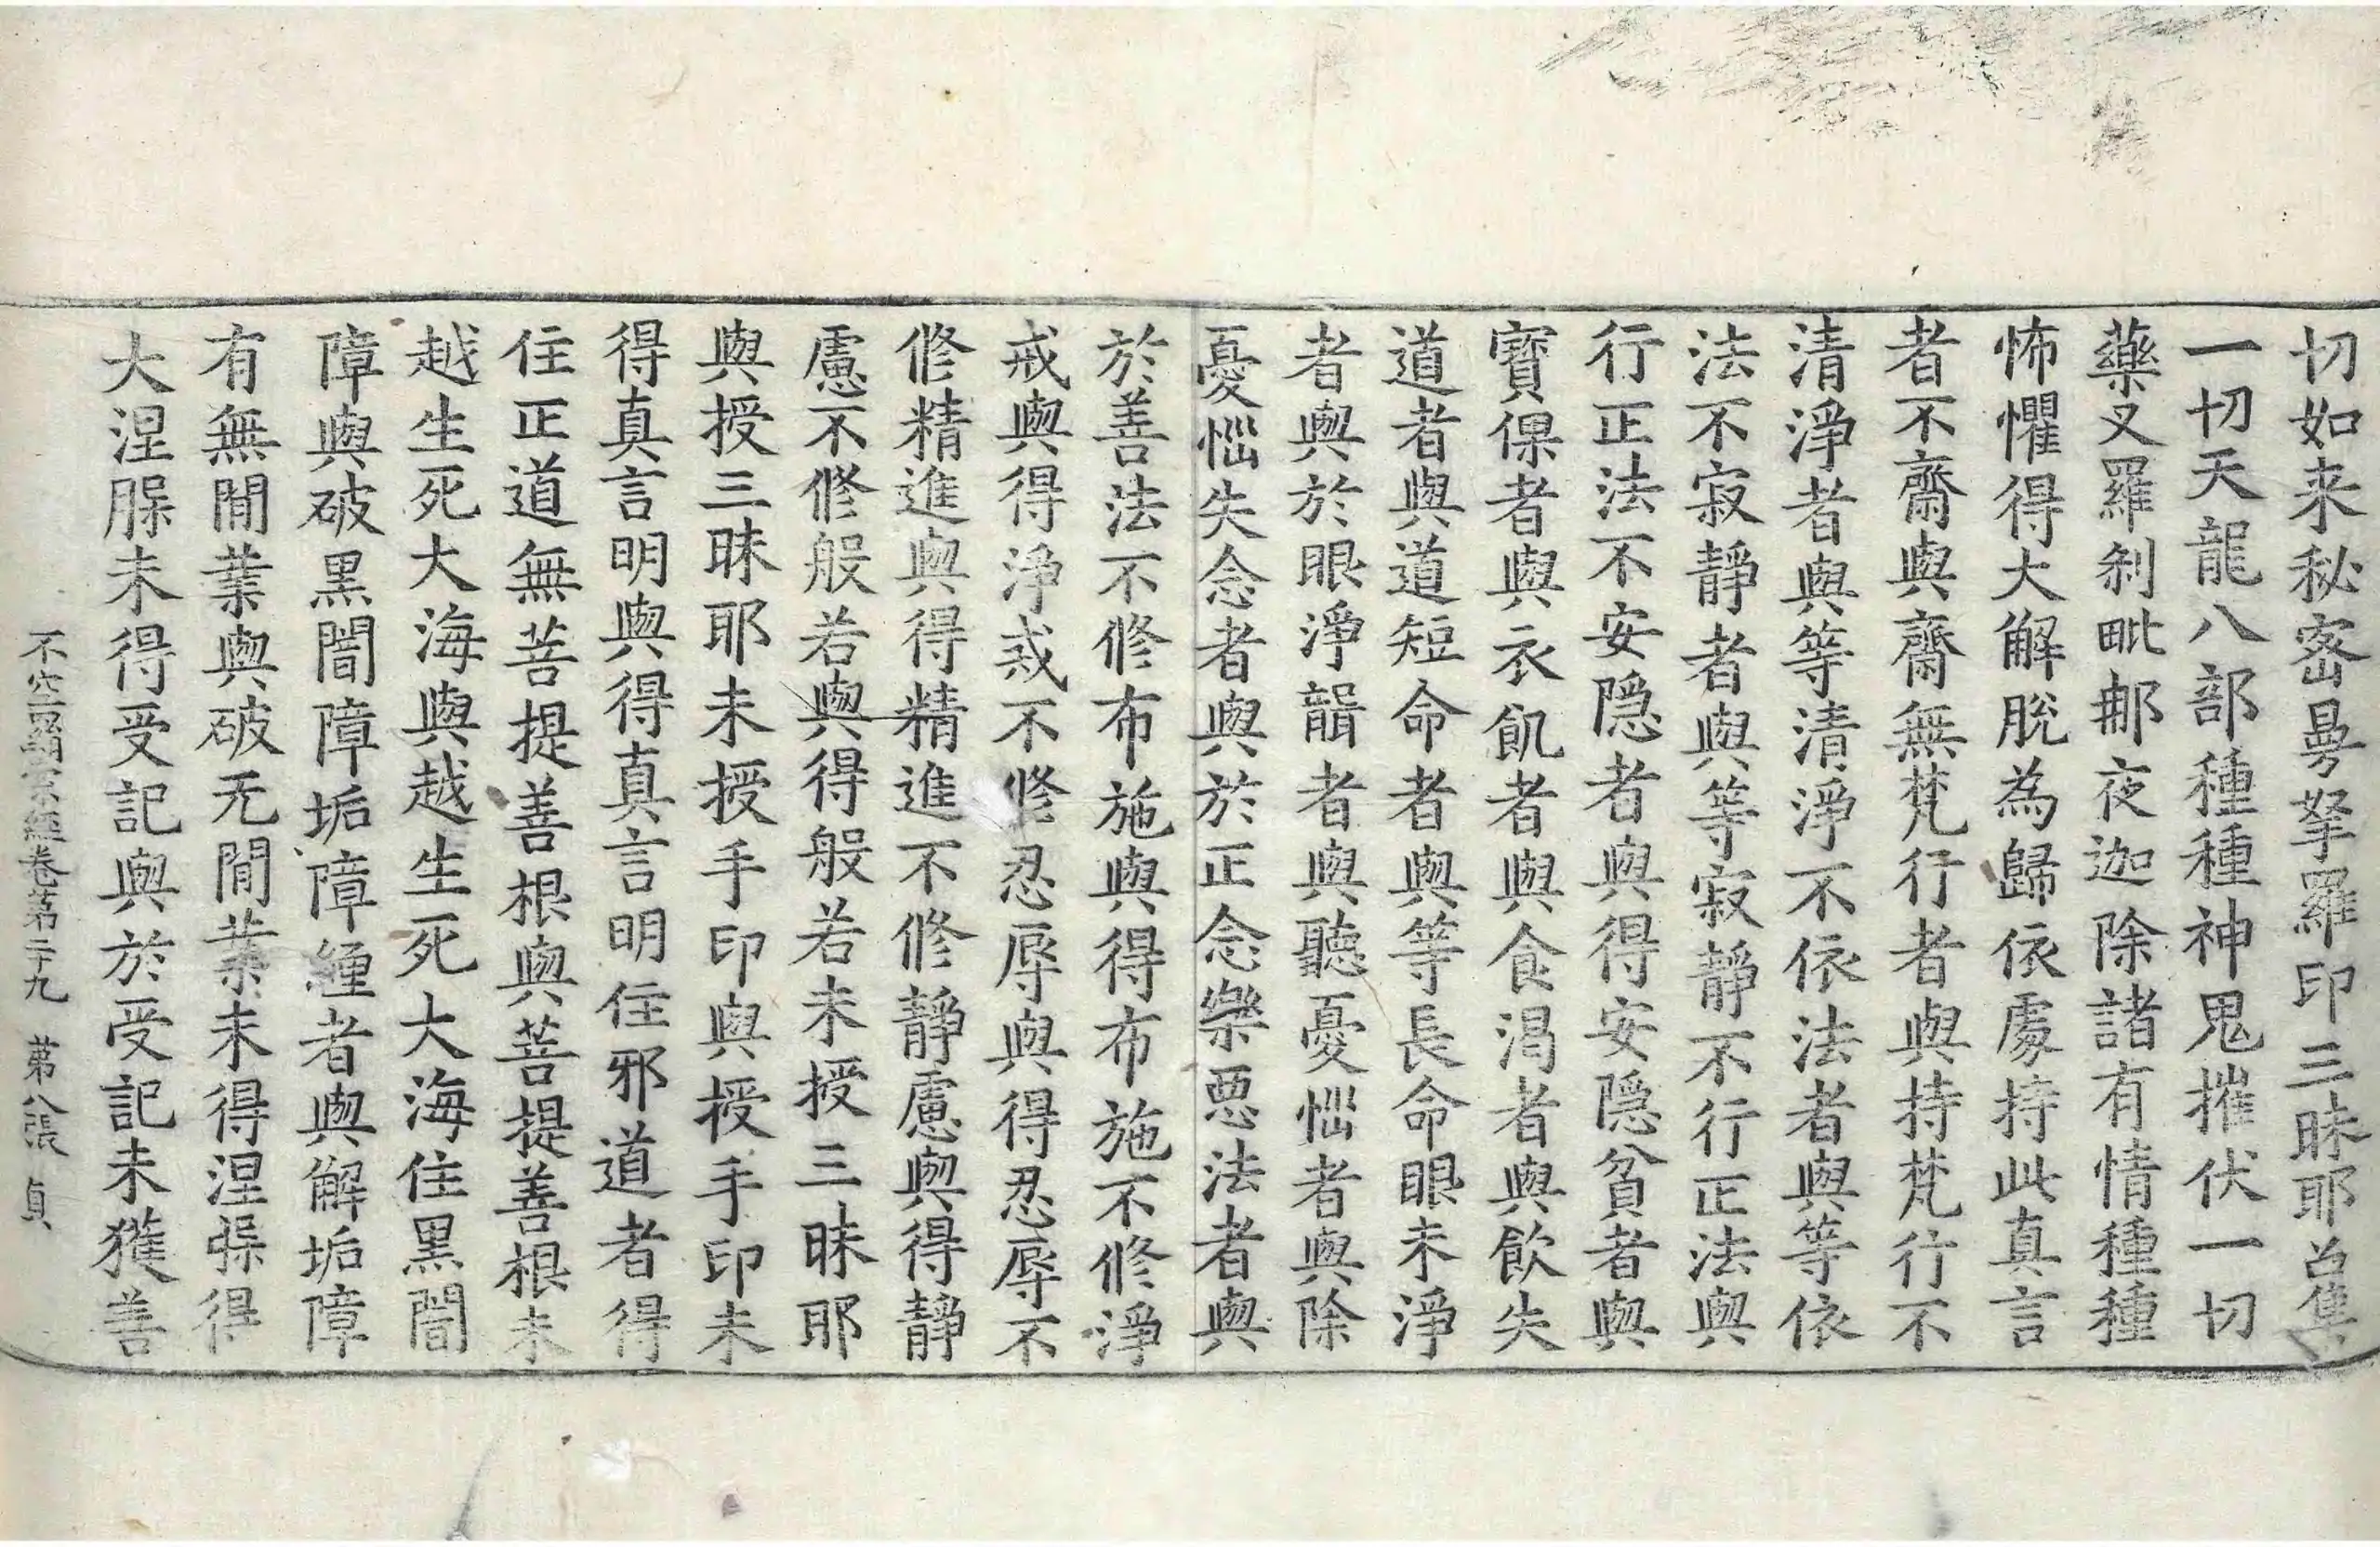 切如来秘密曼拏羅印三昧耶召集
一切天龍八部種種神鬼摧伏一切
藥叉羅刹毗那夜迦除諸有情種種
怖懼得大解脫為歸依處持此真言
者不齋與齋無梵行者與持梵行不
清淨者與等清淨不依法者與等依
法不寂靜者與等寂靜不行正法與
行正法不安隱者與得安隱貧者與
寶倮者與衣飢者與食渴者與飲失
道者與道短命者與等長命眼未淨
者與於眼淨聾者與聽憂惱者與除
憂惱失念者與於正念樂惡法者與
於善法不修布施與得布施不修淨
戒與得淨戒不修忍辱與得忍辱不
修精進與得精進不修靜慮與得靜
慮不修般若與得般若未授三昧耶
與授三昧耶未授手印與授手印未
得真言明與得真言明住邪道者得
住正道無菩提善根與菩提善根未
越生死大海與越生死大海住黑闇
障與破黑闇障垢障纏者與解垢障
有無間業與破无間業未得涅槃得
大涅槃未得受記與於受記未獲善
不空羂索經卷第二十九　第八張　貞